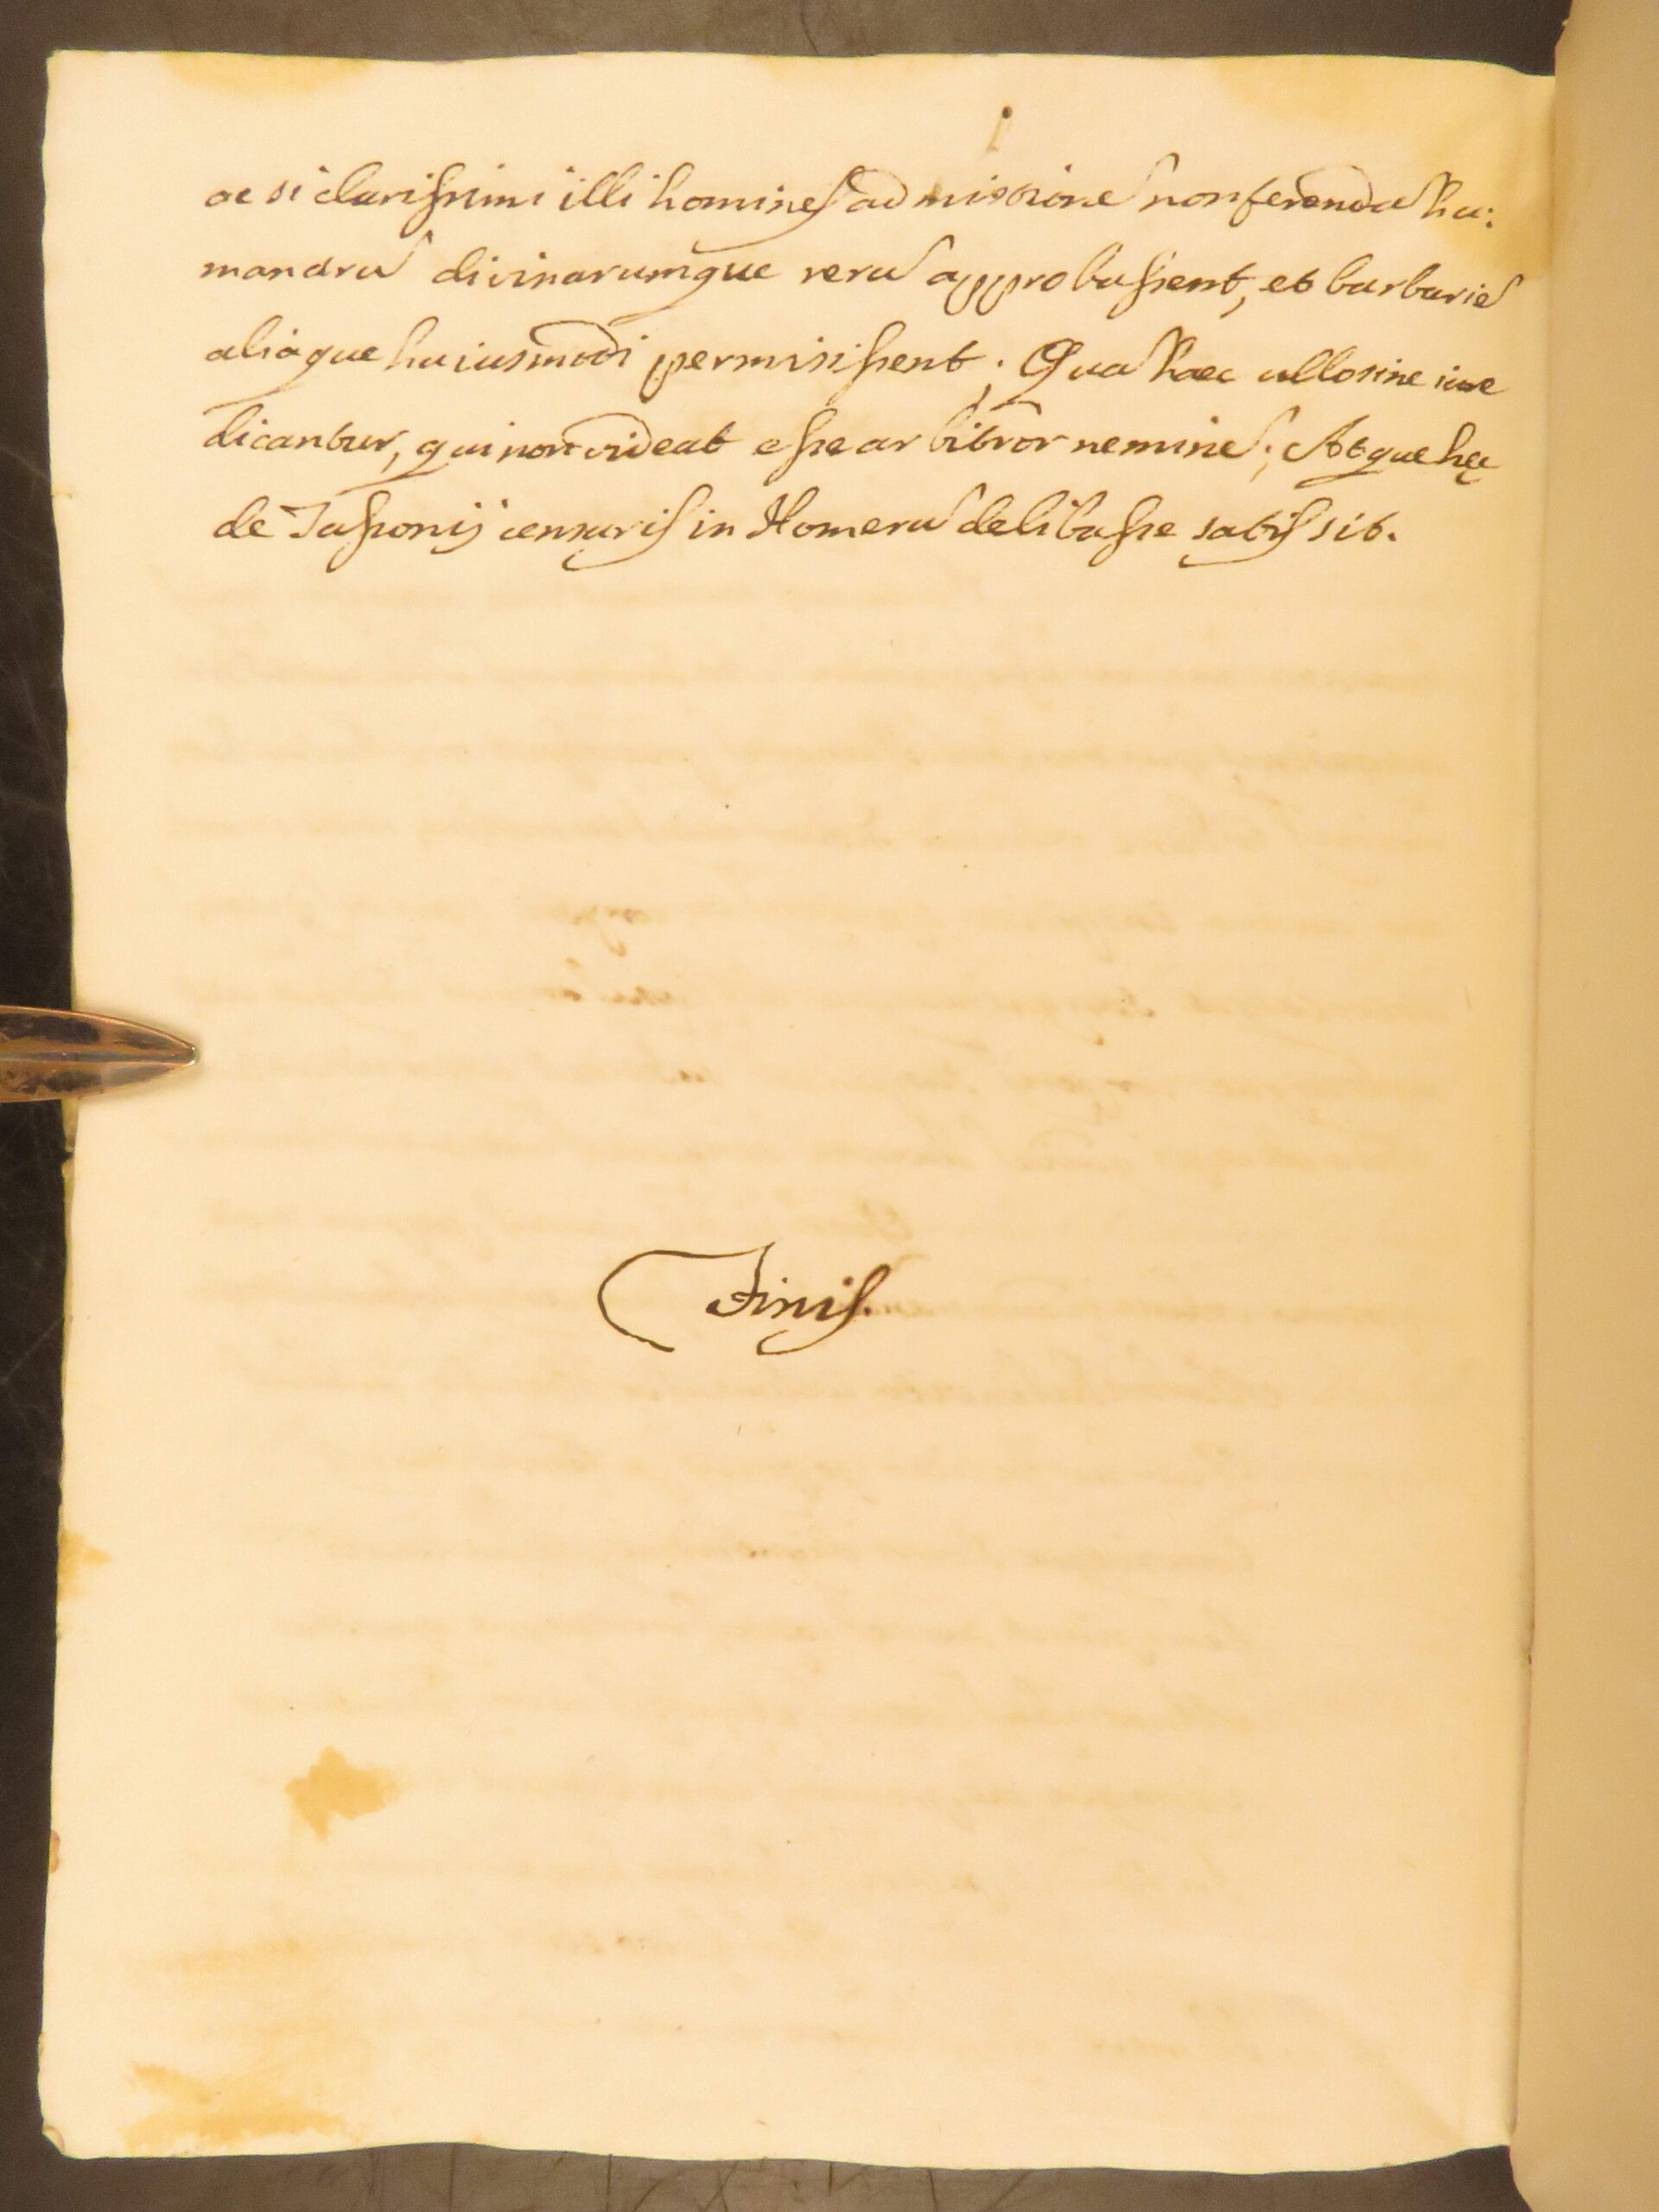 ac si clarissimi illi homines admissionẽ non ferendã hu:
manarũ divinarumque rerũ approbassent, et barbariẽ
aliaque huiusmodi permisissent; Quã haec ullo sine iure
dicantur, qui non videat esse arbitror neminẽ; Atque hęc
de Tassonij censuris in Homerũ delibasse satis sit.
Finis.